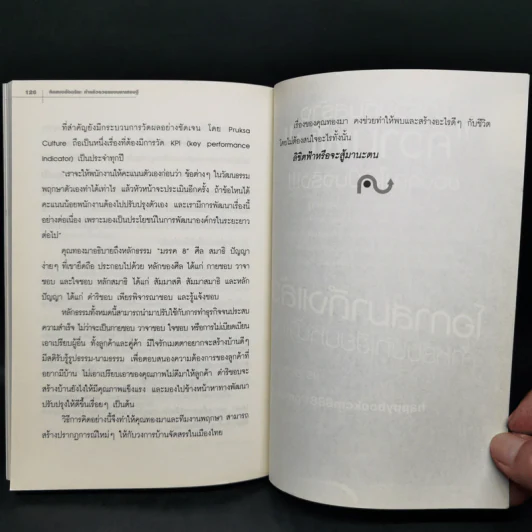 186
ที่สำคัญยังมีกระบวนการวัดผลอย่างชัดเจน โดย Pruksa
Culture ถือเป็นหนึ่งเรื่องที่ต้องมีการวัด KPI (key performance
indicator) เป็นประจำทุกปี
"เราจะให้พนักงานให้คะแนนตัวเองก่อนว่า ข้อต่างๆ ในวัฒนธรรม
พฤกษาตัวเองทำได้เท่าไร แล้วหัวหน้าจะประเมินอีกครั้ง ถ้าข้อไหนได้
คะแนนน้อยพนักงานต้องไปปรับปรุงตัวเอง และเรามีการพัฒนาเรื่องนี้
อย่างต่อเนื่อง เพราะมองเป็นประโยชน์ในการพัฒนาองค์กรในระยะยาว
ต่อไป"
คุณทองมาอธิบายถึงหลักธรรม "มรรค 8" ศีล สมาธิ ปัญญา
ง่ายๆ ที่เขายึดถือ ประกอบไปด้วย หลักของศีล ได้แก่ กายชอบ วาจา
ชอบ และใจชอบ หลักสมาธิ ได้แก่ สัมมาสติ สัมมาสมาธิ และหลัก
ปัญญา ได้แก่ ดำริชอบ เพียรพิจารณาชอบ และรู้แจ้งชอบ
หลักธรรมทั้งหมดนี้สามารถนำมาปรับใช้กับการทำธุรกิจจนประสบ
ความสำเร็จ ไม่ว่าจะเป็นกายชอบ วาจาชอบ ใจชอบ หรือการไม่เบียดเบียน
เอาเปรียบผู้อื่น ทั้งลูกค้าและคู่ค้า มีใจรักเมตตาอยากจะสร้างบ้านดีๆ
มีสติรับรู้รูปธรรม-นามธรรม เพื่อตอบสนองความต้องการของลูกค้าที่
อยากมีบ้าน ไม่เอาเปรียบเอาของคุณภาพไม่ดีมาให้ลูกค้า ดำริชอบจะ
สร้างบ้านยังไงให้มีคุณภาพแข็งแรง และมองไปข้างหน้าหาทางพัฒนา
ปรับปรุงให้ดีขึ้นเรื่อยๆ เป็นต้น
วิธีการคิดอย่างนี้จึงทำให้คุณทองมาและทีมงานพฤกษา สามารถ
สร้างปรากฏการณ์ใหม่ๆ ให้กับวงการบ้านจัดสรรในเมืองไทย
เรื่องของคุณทองมา คงช่วยทำให้พบและสร้างอะไรดีๆ กับชีวิต
โดยไม่ต้องสนใจอะไรทั้งนั้น
ลิขิตฟ้าหรือจะสู้มานะตน